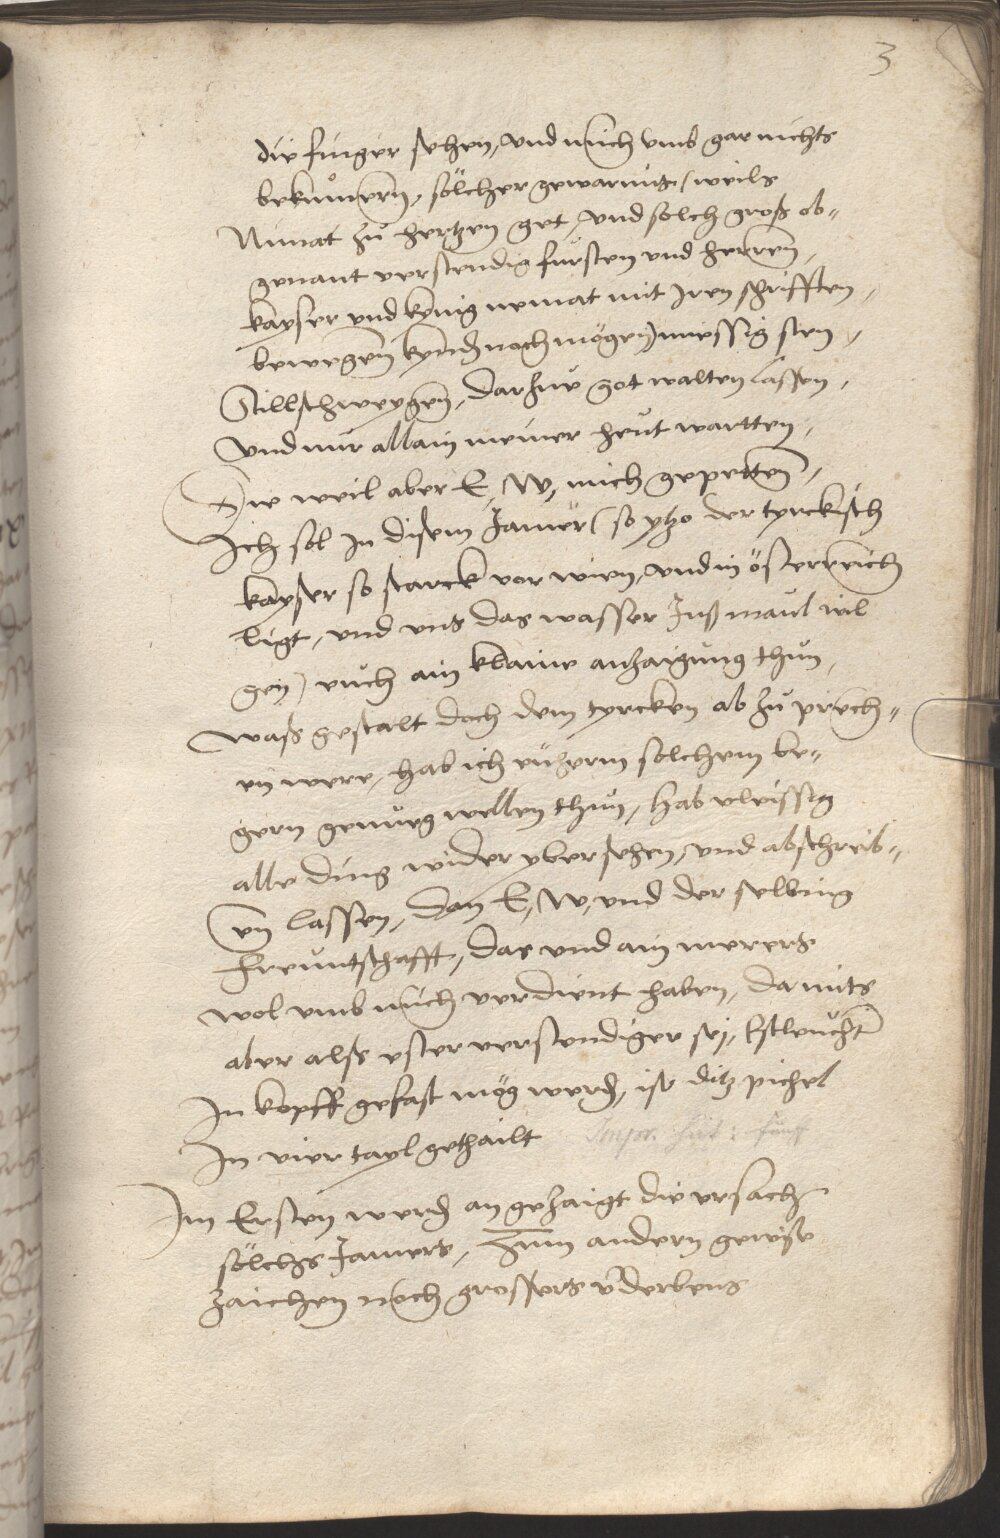 3
die finger sehen, und mich umb gar nichts
bekümern, sölcher gewarnus (weils
Nimat zu hertzen get, und solch groß ob„
genant verstendig fürsten und herren,
kayser und kynig nemat mit Iren schrifften,
bewegen kynd noch mögen) miessig sten,
Stillschweygen, darfur got walten lassen,
und nur allain meiner heut wartten,
Die weil aber E, W, mich gepetten,
Ich sol In disem Jamer (so ytzo der tyrckisch
kayser so starck vor wien, und in österreich
ligt, und uns das wasser Inß maul wil
gen) euch ain klaine anzaigung thun,
waß gestalt doch dem tyrcken ab zu prech„
en were, hab ich eüherm solchem be„
gern genueg wellen thun, hab vleissig
alle ding wider ybersehen, und abschreib„
en lassen, dan E, W, und der selbing
freuntschafft, das und ain merers
wol umb mich verdient haben, damits
aber alß ester verstendiger sey, leuchter
In kopff gefast mög werd, ist ditz pichel
In vier tayl gethailt
Im Ersten werd angezaigt die ursach
sölchs Jamers, Zum andern gewise
zaichen noch grossers verderbens